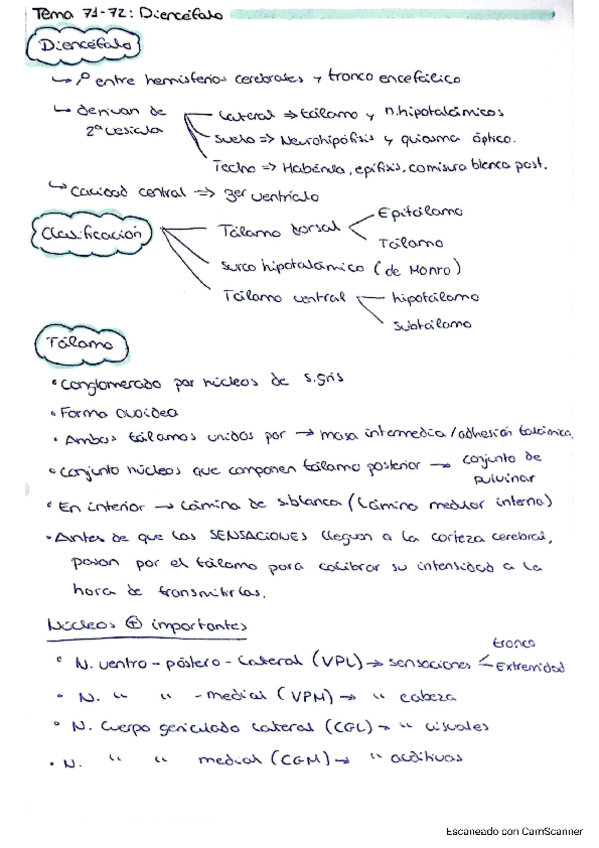 Tema 71-72: Diencéfalo
Diencéfalo
↳ entre hemisferios cerebrales y tronco encefálico
↳ derivan de 2ª vesícula
Lateral ⇒ tálamo y n. hipotalámicos
Suelo ⇒ Neurohipófisis y quiasma óptico.
Techo ⇒ Habénula, epífisis, comisura blanca post.
↳ cavidad central ⇒ 3er ventrículo
Clasificación
Tálamo dorsal
Epitálamo
Tálamo
surco hipotalámico (de Monro)
Tálamo ventral
hipotálamo
subtálamo
Tálamo
• Conglomerado por núcleos de s.gris
• Forma ovoidea
• Ambos tálamos unidos por → masa intermedia/adhesión talámica.
• Conjunto núcleos que componen tálamo posterior → conjunto de pulvinar
• En interior → Lámina de s.blanca (Lámina medular interna)
• Antes de que las SENSACIONES lleguen a la corteza cerebral,
pasan por el tálamo para calibrar su intensidad a la
hora de transmitirlas.
Núcleos ⊕ importantes
• N. ventro-póstero-lateral (VPL) → sensaciones
tronco
Extremidad
• N. " " -medial (VPM) → " cabeza
• N. Cuerpo geniculado lateral (CGL) → " visuales
• N. " " medial (CGM) → " auditivas
Escaneado con CamScanner